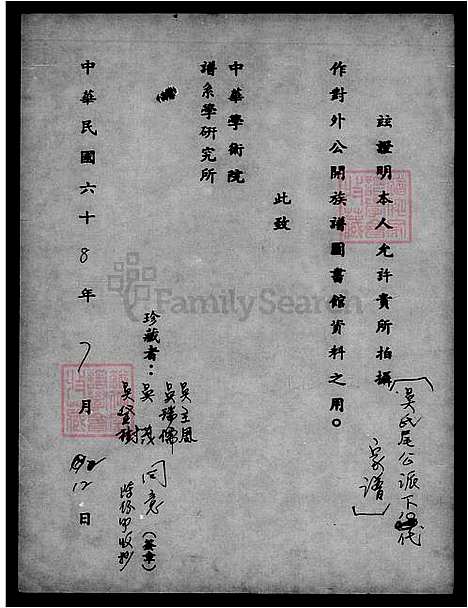 玆證明本人允許貴所拍攝
〔吳氏尾公派下
家譜〕
作對外公開族譜圖書館資料之用。
此致
中華學術院
譜系學研究所
珍藏者：
吳主恩
吳瑞儒
吳茂
同意
(簽章)
中華民國六十8年7月12日
FamilySearch